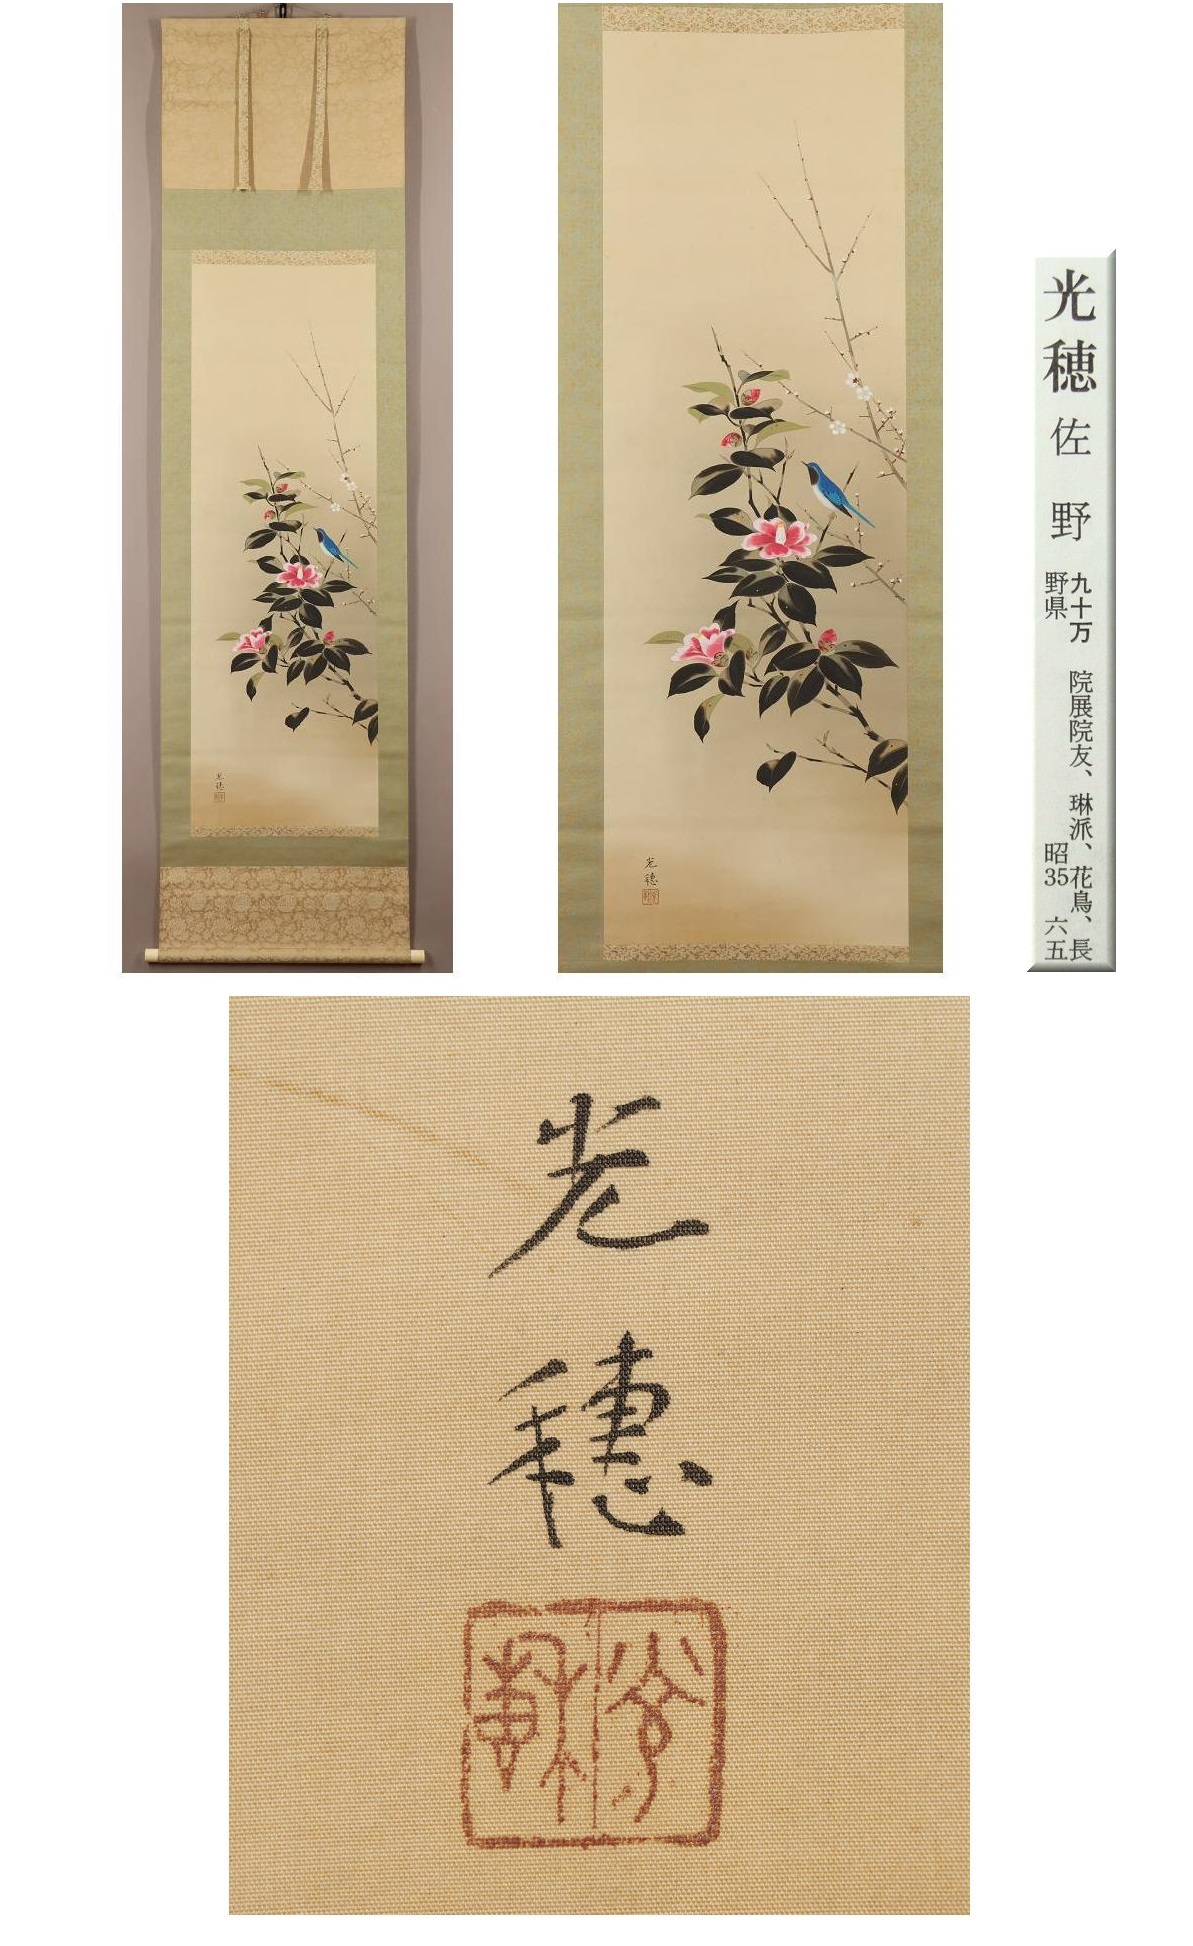 光穂
光穂 佐野 九十万 院展院友、琳派、花鳥、長野県 昭35 六五
光
穂